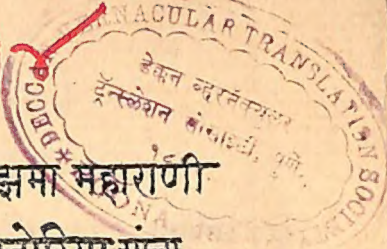 DECCAN VERNACULAR TRANSLATION SOCIETY
डेक्कन व्हर्नाक्युलर
ट्रॅन्स्लेशन सोसायटी, पुणें.
झमा महाराणी